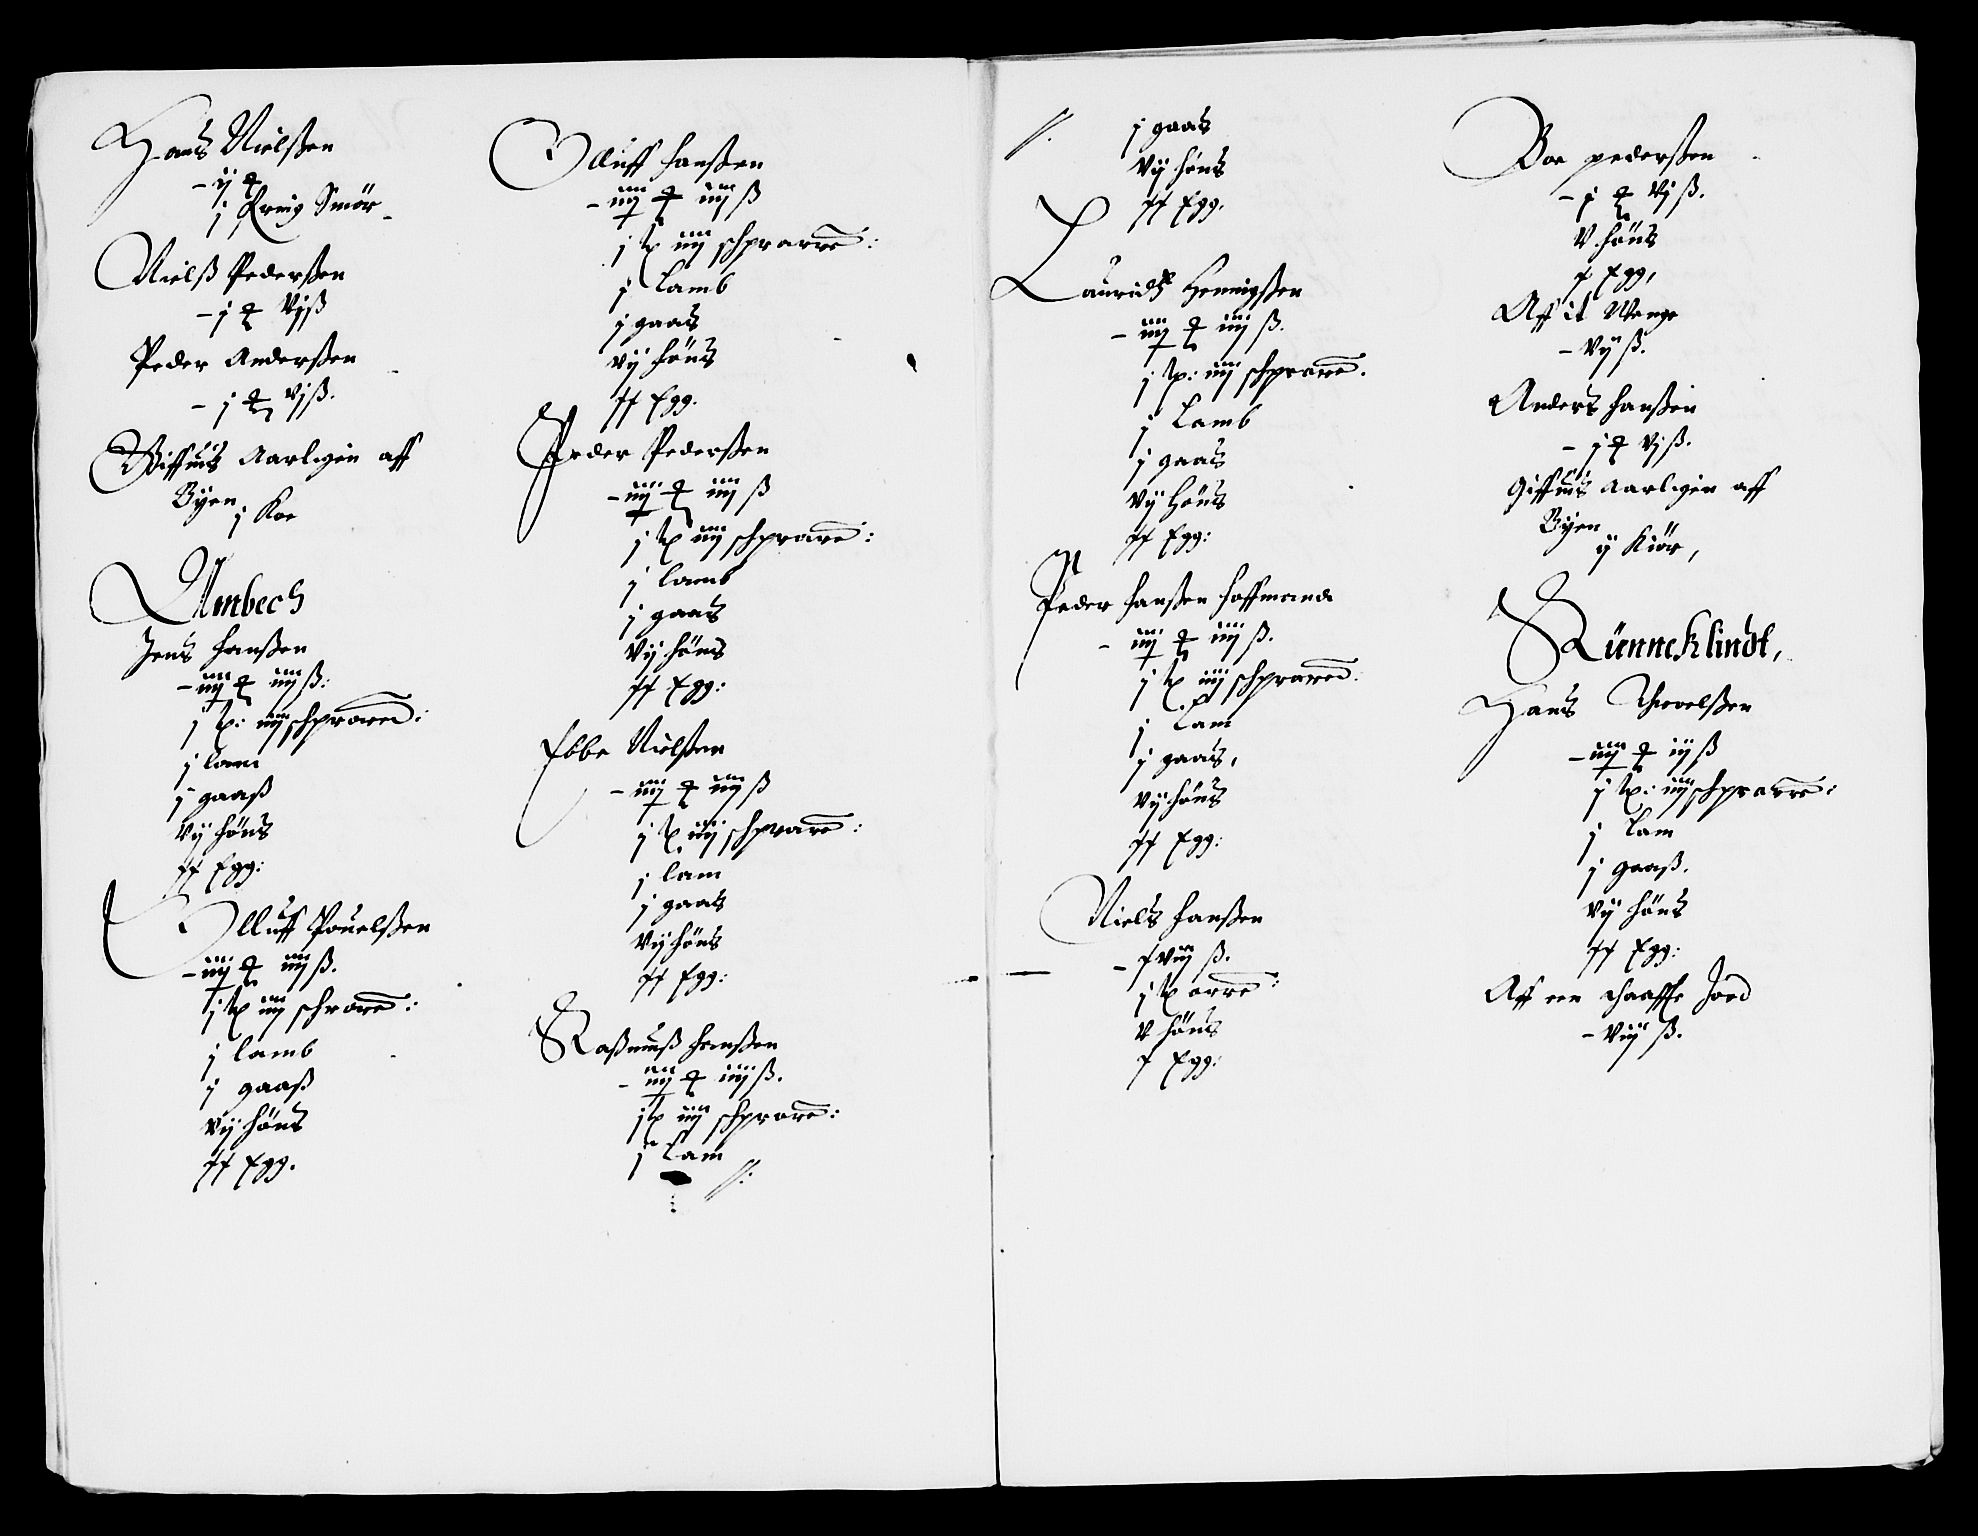 Hans Nielßen
- ij ₰
j Fierig Smör
Nielß Pederßen
- j ₰ vjß
Peder Anderßen
- j ₰ vjß.
Giffuis Aarligen aff
Byen
j Koe
Ambech
Jens Hanßen
- iiij ₰ iiijß:
j tp: iiij schpr arre:
j lam
j gaaß
vij höns
ff Egg:
Olluff Pouelßen
- iiij ₰ iiij ß.
j tp iiij schr arre:
j lamb
j gaaß
vij höns
ff Egg.
Olluff Hanßen
- iiij ₰ iiij ß
j tp iiij schpr arre:
j Lamb
j gaas
vij höns
ff Egg.
Peder Pederßen
- iiij ₰ iiij ß
j tp iiij schpr are:
j lamb
j gaas
vij höns
ff Egg:
Ebbe Nielßen
- iiij ₰ iiij ß
j tp iiij schpr are:
j lam
j gaas
vij höns
ff Egg:
Raßmuß Hanßen
- iiij ₰ iiij ß.
j tp iiij schpr are:
j Lam
//:
//:
j gaas
vij höns
ff Egg.
Lauridtz Hennigßen
- iiij ₰ iiij ß.
j tp: iiij schpr are.
j Lamb
j gaas
vij Höns
ff Egg:
Peder Hanßen Hoffmand
- iiij ₰ iiij ß.
j tp iiij schpr are:
j Lam
j gaas,
vij höns
ff Egg:
Niels Hanßen
- f viij ß.
j tp arre:
v höns
f Egg:
Boe pederßen
- j ₰ vj ß.
v höns
f Egg,
Aff it Wenge
- vij ß.
Anders Hanßen
- j ₰ vj ß.
Giffuis Aarligen aff
Byen
ij Kiör,
Rünneklindt,
Hans Thuelßen
- iiij ₰ iij ß
j tp: iiij schpr arre:
j Lam
j gaaß.
vij höns
ff Egg:
Aff een Jord
- viij ß.